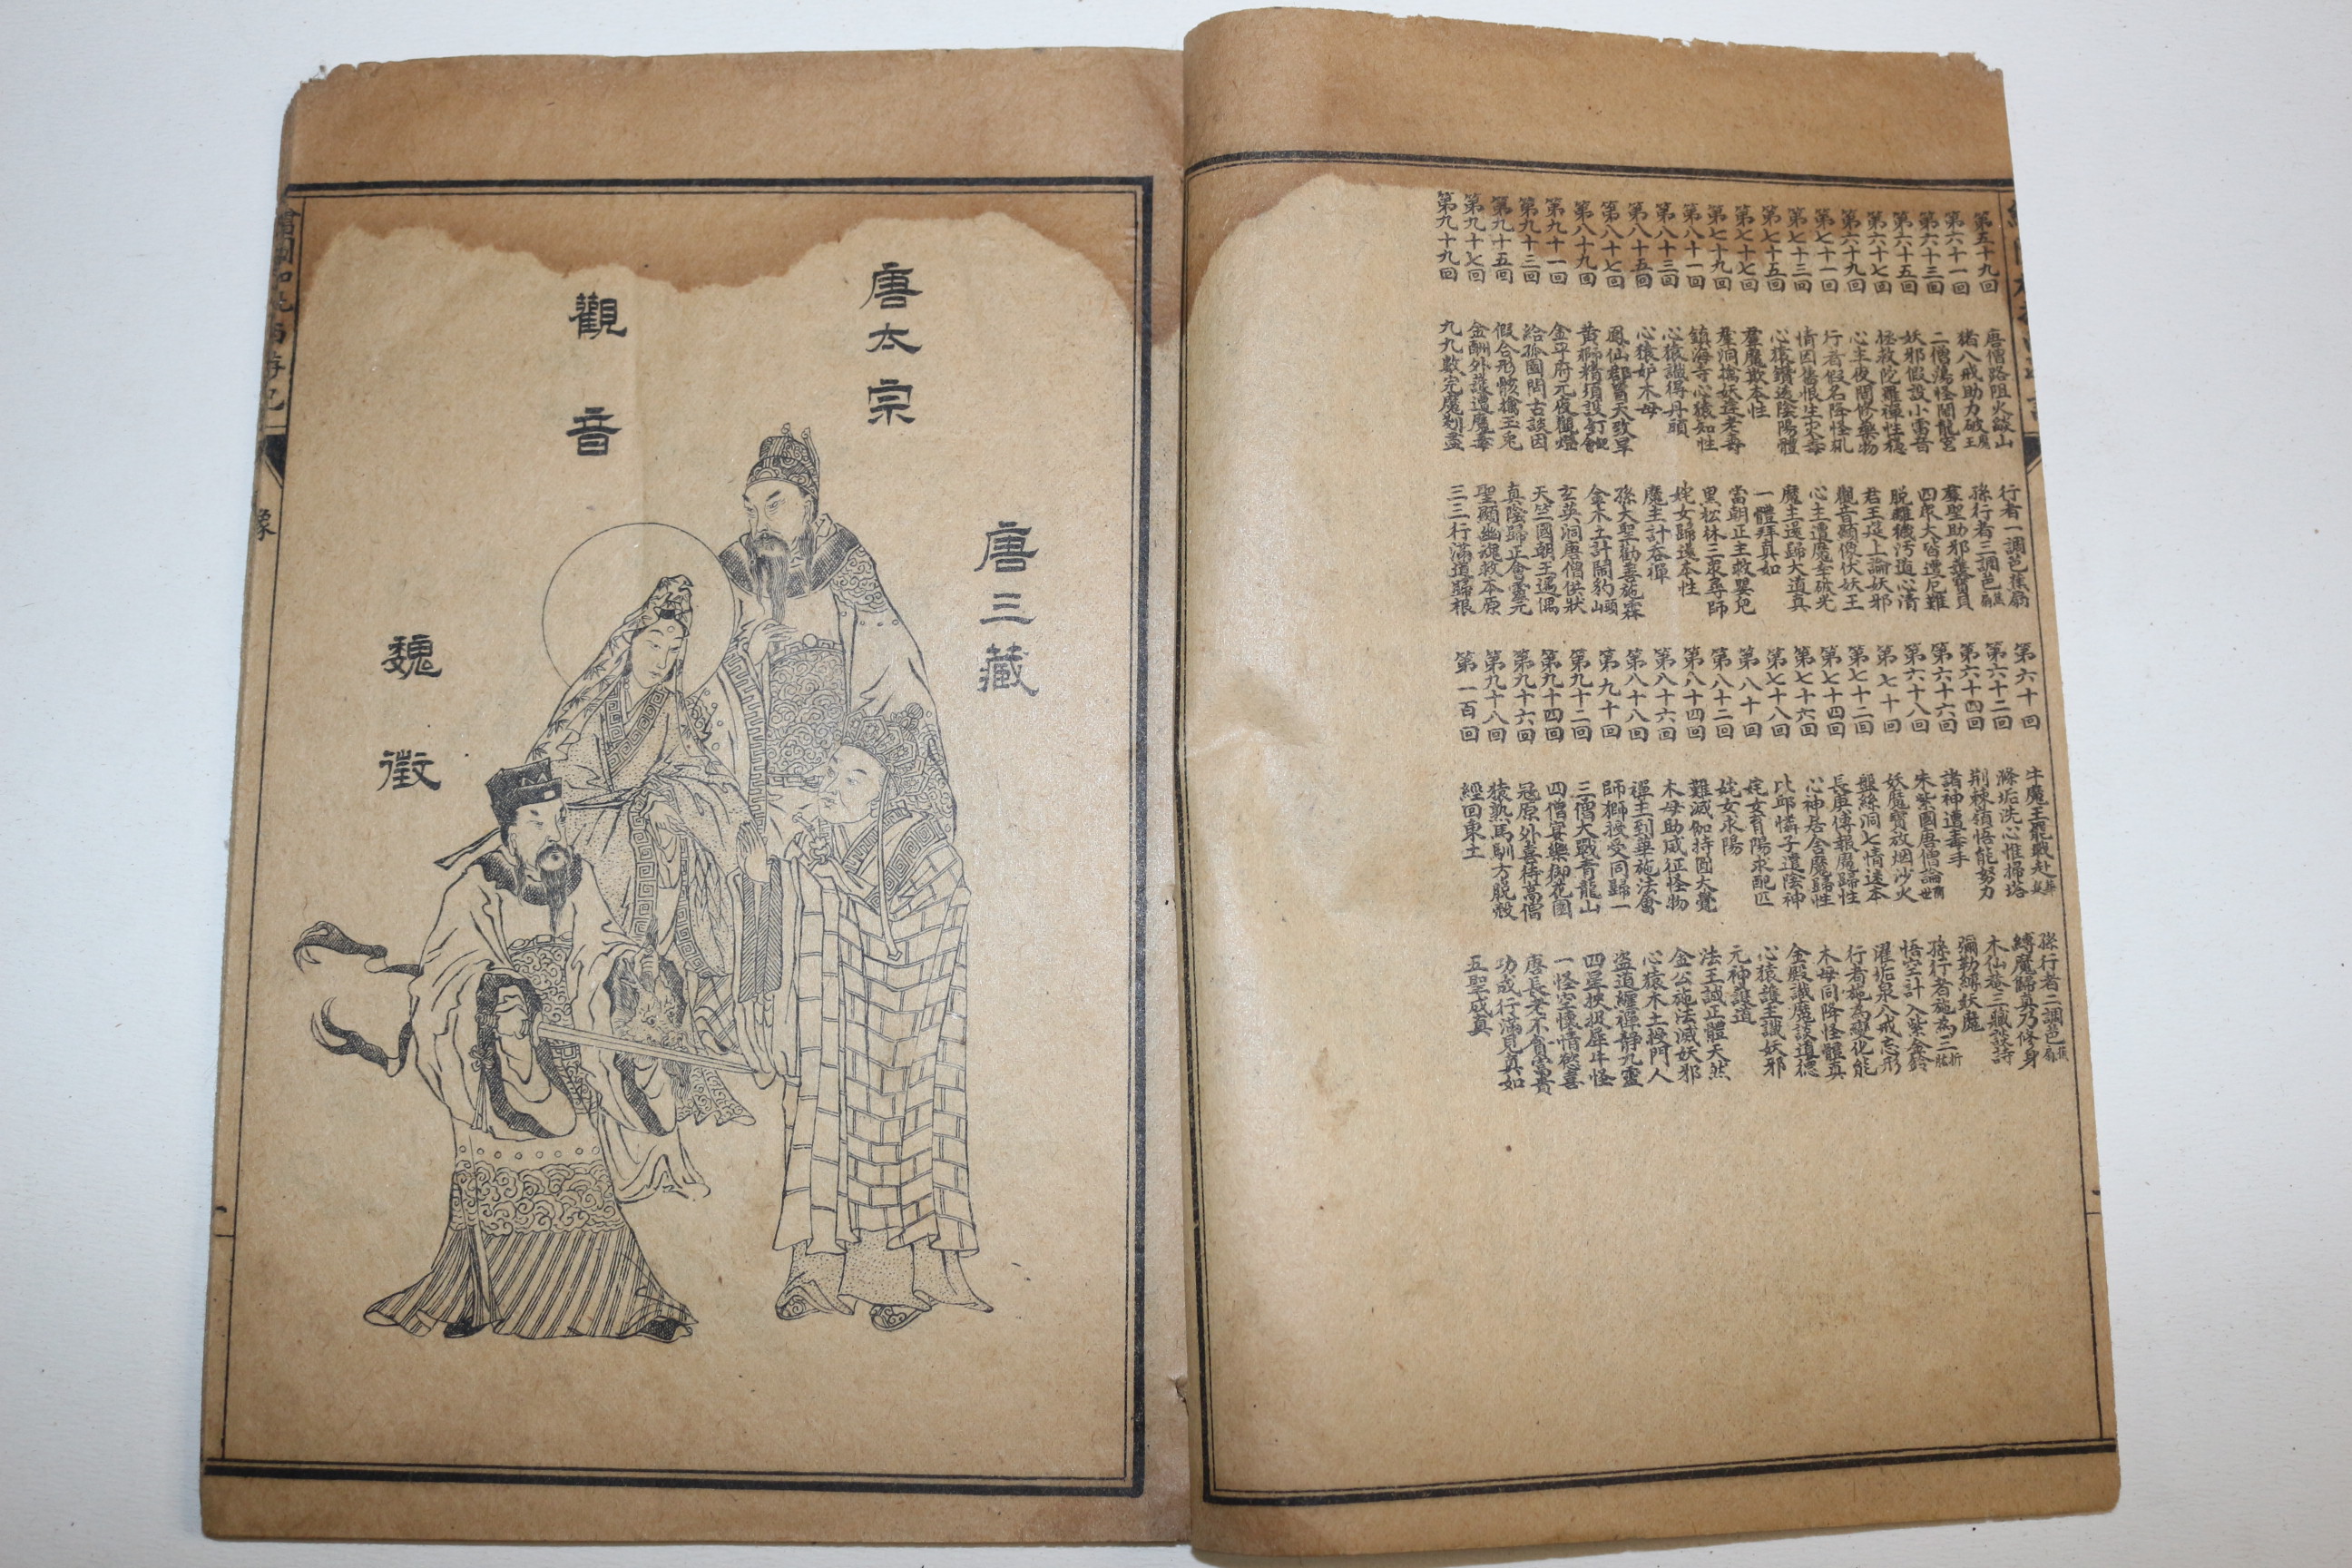 第五十九回 唐僧路阻火燄山 行者一調芭蕉扇 第六十回 牛魔王罷戰赴華筵 孫行者二調芭蕉扇
第六十一回 猪八戒助力破魔王 孫行者三調芭蕉扇 第六十二回 滌垢洗心惟掃塔 縛魔歸真乃修身
第六十三回 二僧蕩怪鬧龍宮 羣聖助邪獲寶貝 第六十四回 荆棘嶺悟能努力 木仙菴三藏談詩
第六十五回 妖邪假設小雷音 四眾大皆遭厄難 第六十六回 諸神遭毒手 彌勒縛妖魔
第六十七回 拯救陀羅禪性穩 脱離穢汚道心清 第六十八回 朱紫國唐僧論前世 孫行者施為三折肱
第六十九回 心主夜間修藥物 君王筵上論妖邪 第七十回 妖魔寶放烟沙火 悟空計入紫金鈴
第七十一回 行者假名降怪犼 觀音顯像伏妖王 第七十二回 盤絲洞七情迷本 濯垢泉八戒忘形
第七十三回 情因舊恨生災毒 心主遭魔幸破光 第七十四回 長庚傳報魔歸性 行者施為變化能
第七十五回 心猿鑽透陰陽體 魔主還歸大道真 第七十六回 心神居舍魔歸性 木母同降怪體真
第七十七回 羣魔欺本性 一體拜真如 第七十八回 比邱憐子遣陰神 金殿識魔談道德
第七十九回 尋洞擒妖逢老壽 當朝正主救嬰兒 第八十回 姹女育陽求配匹 心猿護主識妖邪
第八十一回 鎮海寺心猿知性 黑松林三眾尋師 第八十二回 姹女求陽 元神護道
第八十三回 心猿識得丹頭 姹女歸還本性 第八十四回 難滅伽持圓大覺 法王誠正體天然
第八十五回 心猿妒木母 魔主計吞禪 第八十六回 木母助威征怪物 金公施法滅妖邪
第八十七回 鳳仙郡冒天致旱 孫大聖勸善施霖 第八十八回 禪主到華施法會 心猿木土授門人
第八十九回 黄獅精須設釘鈀會 金木土計鬧豹頭山 第九十回 師獅授受同歸一 盜道纏禪靜九靈
第九十一回 金平府元夜觀燈 玄英洞唐僧供狀 第九十二回 三僧大戰青龍山 四星挾捉犀牛怪
第九十三回 給孤園問古談因 天竺國朝王遇偶 第九十四回 四僧宴樂御花園 一怪空懷情慾喜
第九十五回 假合形骸擒玉兔 真陰歸正會靈元 第九十六回 寇原外喜待高僧 唐長老不貪富貴
第九十七回 金酬外護遭魔毒 聖顯幽魂救本原 第九十八回 猿熟馬馴方脱殻 功成行滿見真如
第九十九回 九九數完魔剗盡 三三行滿道歸根 第一百回 經回東土 五聖成真
唐三藏
唐太宗
觀音
魏徵
像